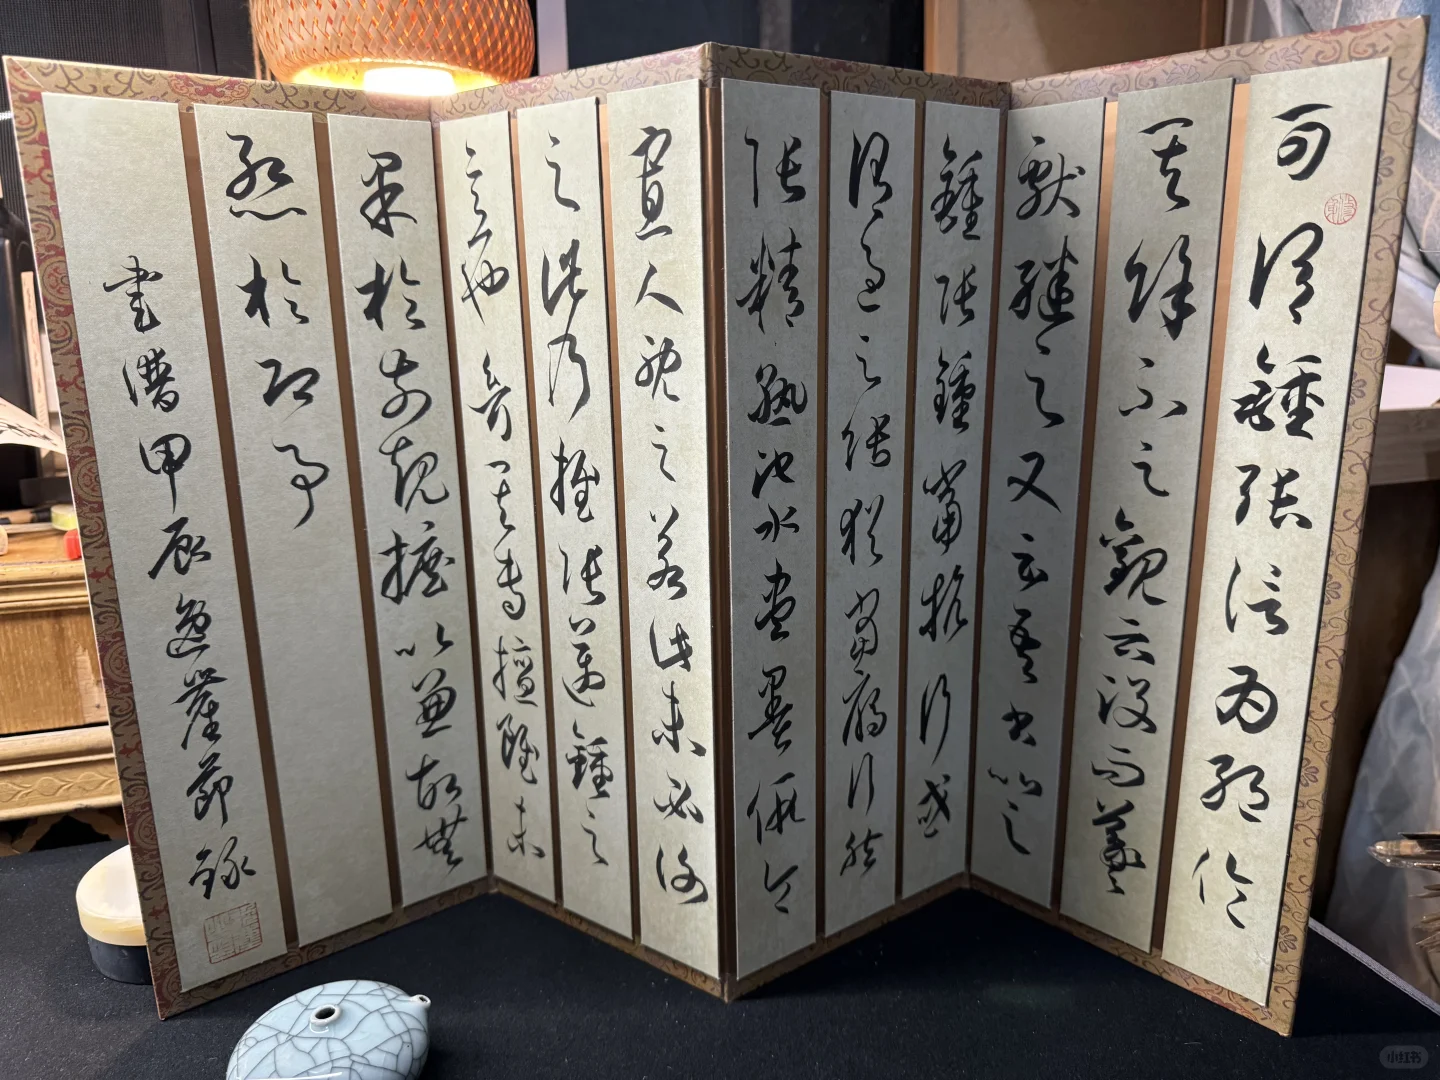 可謂鍾張信為絕倫
其餘不足觀云沒而羲
獻繼之又云吾書比之
鍾張鍾當抗行或
謂過之張猶當雁行然
張精熟池水盡墨假令
寡人耽之若此未必謝
之此乃推張邁鍾之
意也考其專擅雖未
果於前規摭以兼故無
慙於即事
書譜甲辰逸崖節錄
小红书